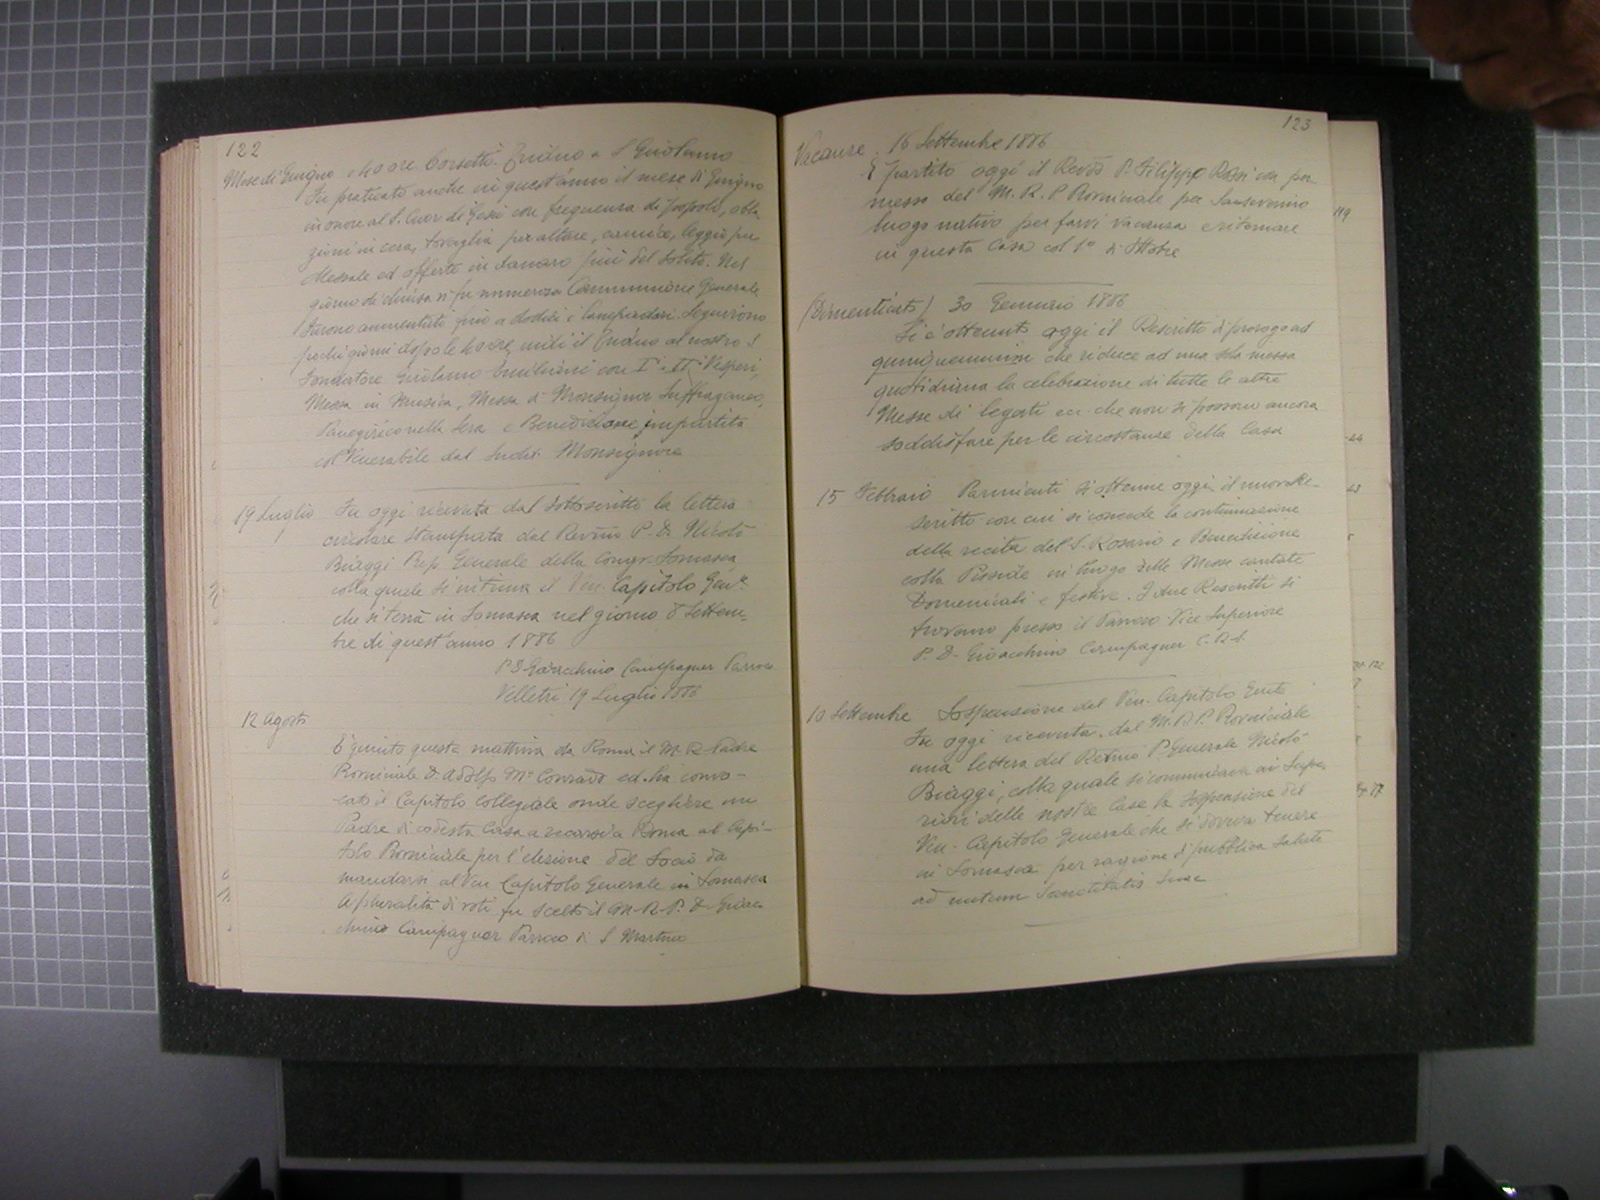 122
Mese di Giugno e 40 ore Corsetti. Triduo a S Girolamo
Fu praticato anche in quest'anno il mese di Giugno
in onore al S. Cuor di Gesù con frequenza di popolo, obla
zioni in cera, tovaglia per altare, camice, leggii pu
Messale ed offerte in danaro più del solito. Nel
giorno di chiusa vi fu numerosa Communione Generale
Furono aumentati più a dodici i lampadari. Seguirono
pochi giorni dopo le 40 ore, indi il Triduo al nostro S
Fondatore Girolamo Emiliani con I e II Vesperi,
Messa in Musica, Messa di Monsignor Suffraganeo,
Panegirico nella sera e Benedizione impartita
col Venerabile dal sudd. Monsignore
19 Luglio Fu oggi ricevuta dal sottoscritto la lettera
circolare stampata del Rev.mo P. D. Nicolò
Biaggi Prep. Generale della Congr. Somasca
colla quale si intima il Ven. Capitolo Gen.le
che si terrà in Somasca nel giorno 8 Settem,
bre di quest'anno 1886
P. D. Gioacchino Campagner Parroco
Velletri 19 Luglio 1886
12 Agosto
È giunto questa mattina da Roma il M. R. Padre
Provinciale D. Adolfo M.a Conrado ed ha convo-
cato il Capitolo Collegiale onde scegliere un
Padre di codesta Casa a recarsi a Roma al Capi-
tolo Provinciale per l'elezione del Socio da
mandarsi al Ven Capitolo Generale in Somasca
A pluralità di voti fu scelto il M. R. P. D. Gioac
chino Campagner Parroco di S Martino
123
Vacanze. 16 Settembre 1886
È partito oggi il Revdo P. Filippo Rossi con per
messo del M. R. P. Provinciale per Sanseverino
luogo nativo per farvi vacanza e ritornare
in questa Casa col 1° di Ottobre
119
(Dimenticato) 30 Gennaio 1886
Si è ottenuto oggi il Rescritto di proroga ad
quinquennium che riduce ad una sola messa
quotidiana la celebrazione di tutte le altre
Messe di legati ecc. che non si possono ancora
soddisfare per le circostanze della Casa
15 Febbraio Parimenti si ottenne oggi il nuovo Re-
scritto con cui si concede la continuazione
della recita del S. Rosario e Benedizione
colla Pisside in luogo delle Messe cantate
Domenicali e festive. I due Rescritti si
trovano presso il Parroco Vice Superiore
P. D. Gioacchino Campagner C.R.S.
10 Settembre Sospensione del Ven. Capitolo Gnle
Fu oggi ricevuta dal M. R. P. Provinciale
una lettera del Rev.mo P. Generale Nicolò
Biaggi, colla quale si communicava ai Supe
riori delle nostre Case la sospensione del
Ven. Capitolo Generale che si doveva tenere
in Somasca per ragione di pubblica salute
ad nutum Sanctitatis Suae